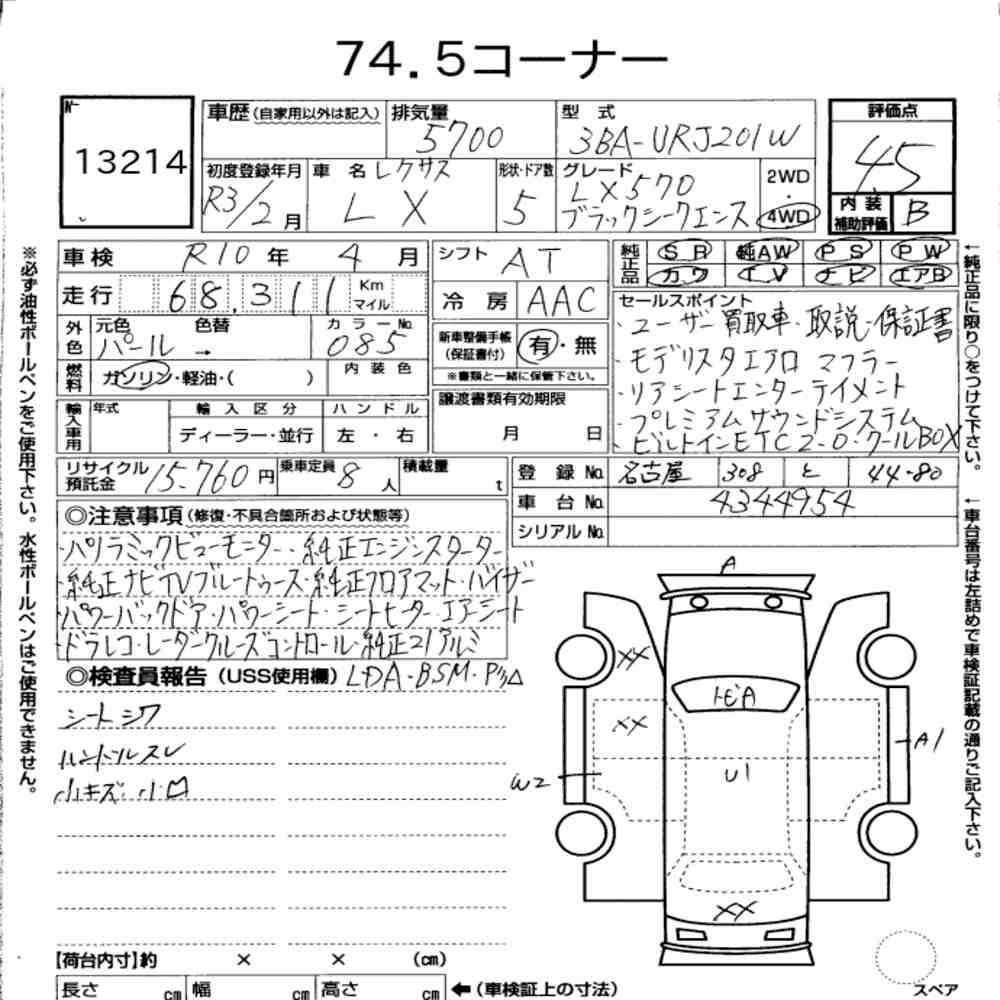 74.5コーナー
№
13214
車歴(自家用以外は記入) 排気量 5700 型式 3BA-URJ201W
初度登録年月 R3/2月 車名 レクサス LX 形状・ドア数 5 グレード LX570 ブラックシークエンス 2WD・4WD
評価点 4.5
内装補助評価 B
車検 R10年 4月
走行 68,311 Km マイル
シフト AT
冷房 AAC
純正品 SR 純AW PS PW
カワ TV ナビ エアB
外色 元色 パール 色替 → カラーNo. 085
燃料 ガソリン・軽油・( ) 内装色
新車整備手帳(保証書付) 有・無
※書類と一緒に保管下さい。
輸入車用 年式 輸入区分 ハンドル
ディーラー・並行 左・右
譲渡書類有効期限
月 日
セールスポイント
・ユーザー買取車・取説・保証書
・モデリスタエアロ マフラー
・リアシートエンターテイメント
・プレミアムサウンドシステム
・ビルトインETC2.0・クールBOX
リサイクル預託金 15,760円 乗車定員 8人 積載量 t
登録No. 名古屋 308 と 44-80
車台No. 4344954
シリアルNo.
◎注意事項(修復・不具合箇所および状態等)
・パノラミックビューモニター・純正エンジンスターター
・純正ナビTVブルートゥース・純正フロアマット・バイザー
・パワーバックドア・パワーシート・シートヒーター エアーシート
・ドラレコ・レーダークルーズコントロール・純正21アルミ
◎検査員報告(USS使用欄) LDA・BSM・Pソナ
シートシワ
ハンドルスレ
小キズ・小凹
A
XX
トビA
XX
A1
W2
U1
XX
【荷台内寸】約 × × (cm)
長さ cm 幅 cm 高さ cm ←(車検証上の寸法)
スペア
※必ず油性ボールペンをご使用下さい。水性ボールペンはご使用できません。
←純正品に限り○をつけて下さい。
←車台番号は左詰めで車検証記載の通りご記入下さい。